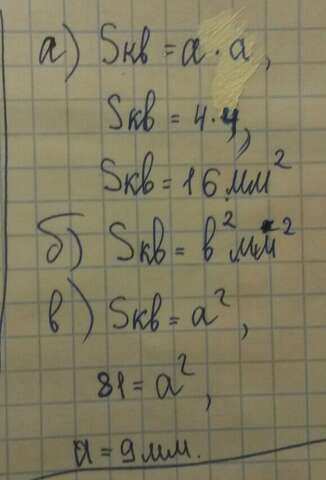 а) Sкв = a · a,
Sкв = 4 · 4,
Sкв = 16 мм²
б) Sкв = в² мм²
в) Sкв = a²,
81 = a²,
a = 9 мм.